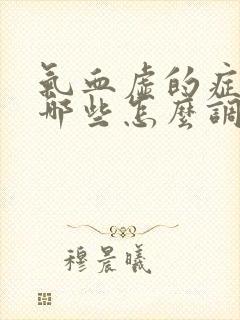 氣血虛的症
哪些怎麼調
穆晨曦